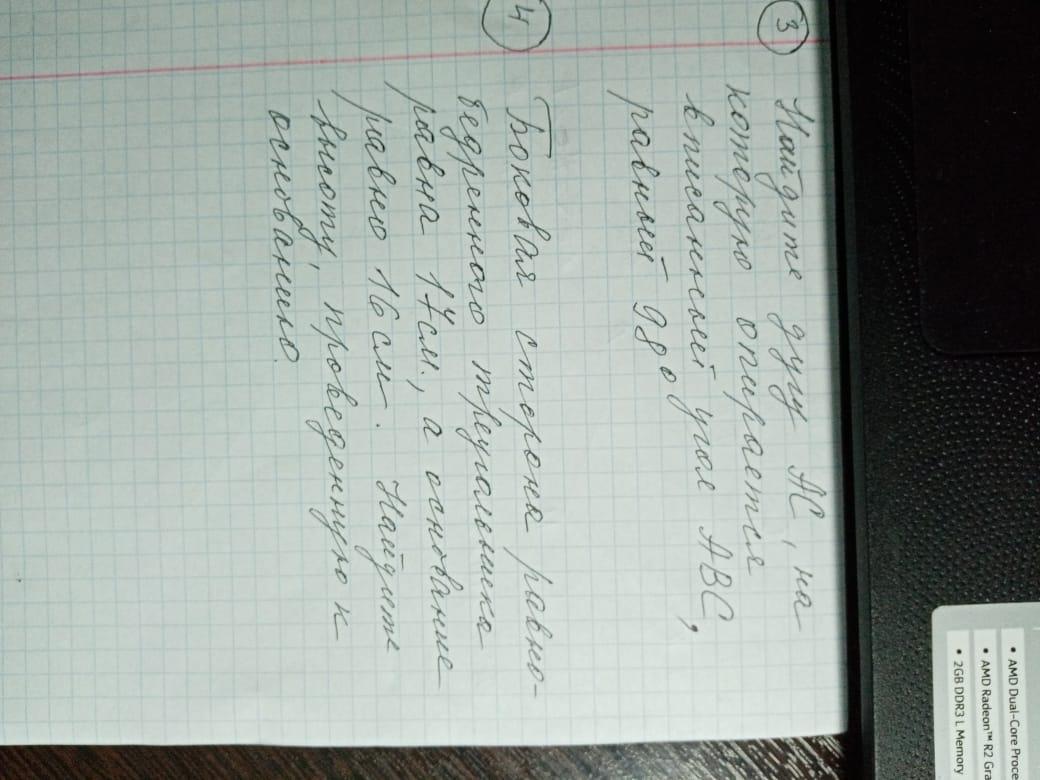 3
Найдите дугу АС, на
которую опирается
вписанный угол АВС,
равный 98°
4
Боковая сторона равно-
бедренного треугольника
равна 17см., а основание
равно 16 см. Найдите
высоту, проведенную к
основанию.
• AMD Dual-Core Proce
• AMD Radeon™ R2 Gra
• 2GB DDR3 L Memory